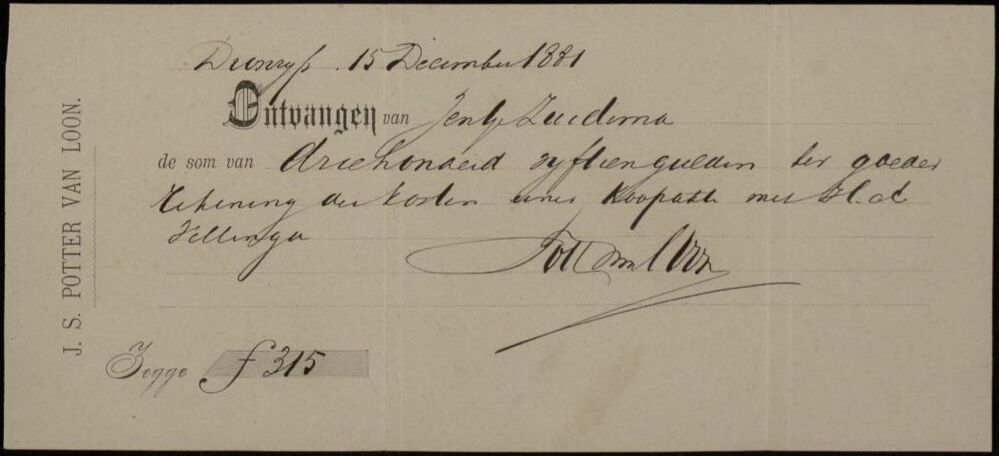 J. S. POTTER VAN LOON.
Dronryp 15 December 1881
Ontvangen van Jentje Zuidema
de som van driehonderd vyftien gulden ter goeder
rekening der kosten eener Koopakte met H. d.
Hellinga
Pott van Loon
Zegge f 315